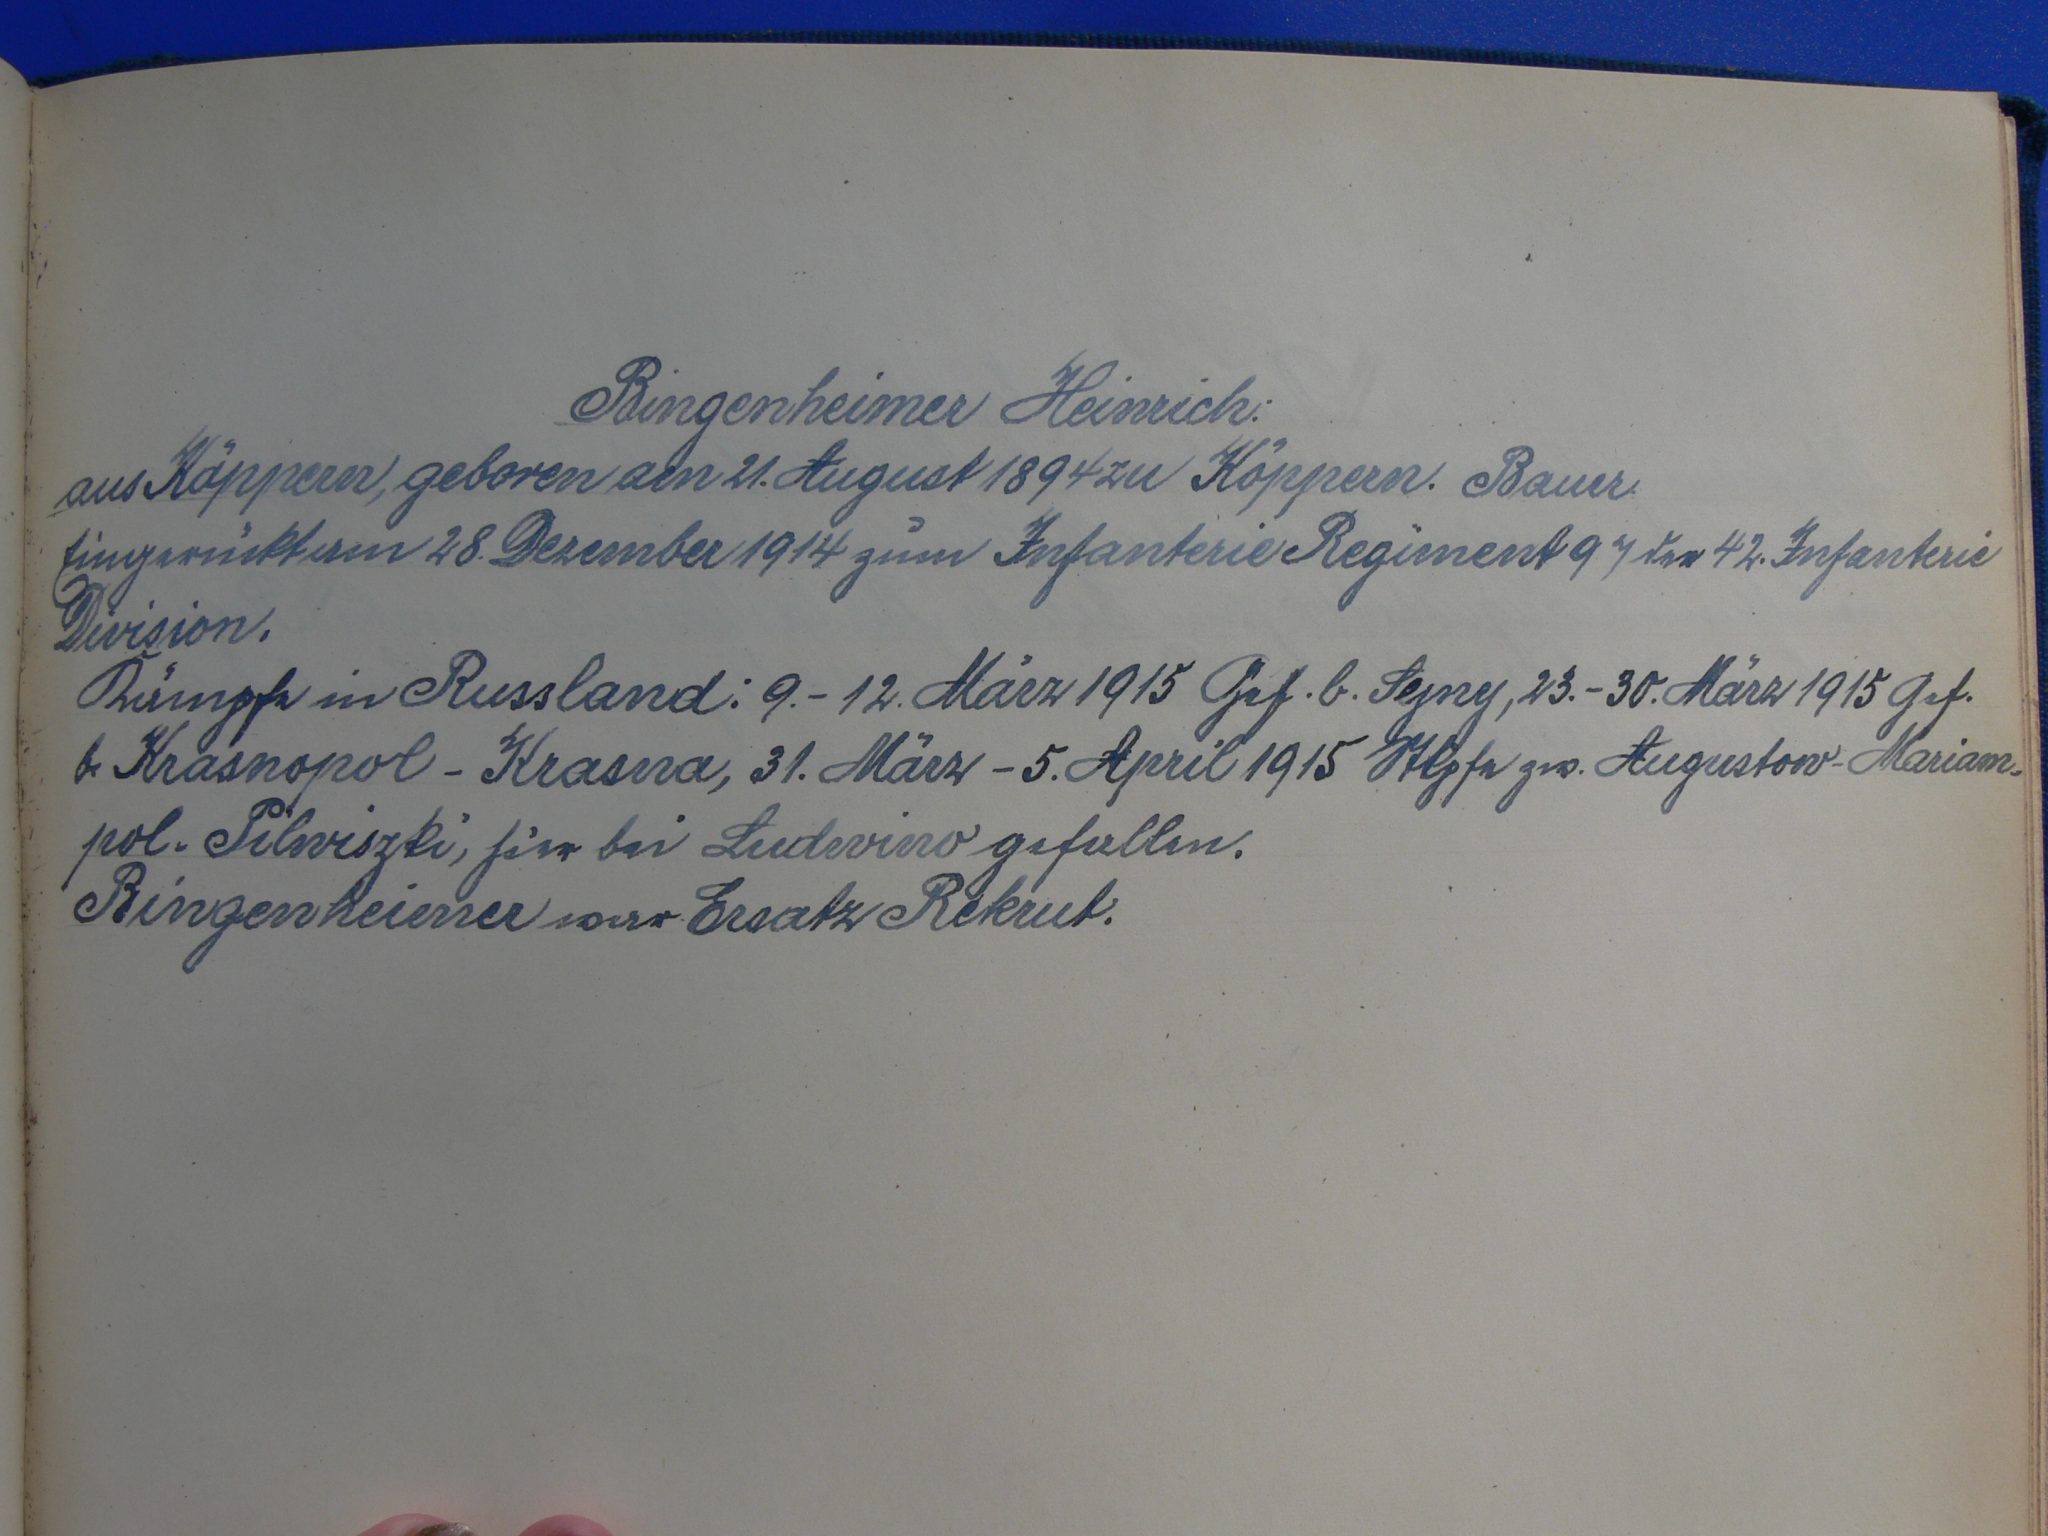 Bingenheimer Heinrich:
aus Köppern, geboren am 21. August 1894 zu Köppern. Bauer.
Eingerückt am 28. Dezember 1914 zum Infanterie Regiment 97 der 42. Infanterie
Division.
Kämpfe in Russland: 9.-12. März 1915 Gef. b. Sejny, 23.-30. März 1915 Gef.
b. Krasnopol - Krasna, 31. März - 5. April 1915 Stlgpfe zw. Augustow-Mariam-
pol-Pilwiszki, hier bei Ludwino gefallen.
Bingenheimer war Ersatz Rekrut.